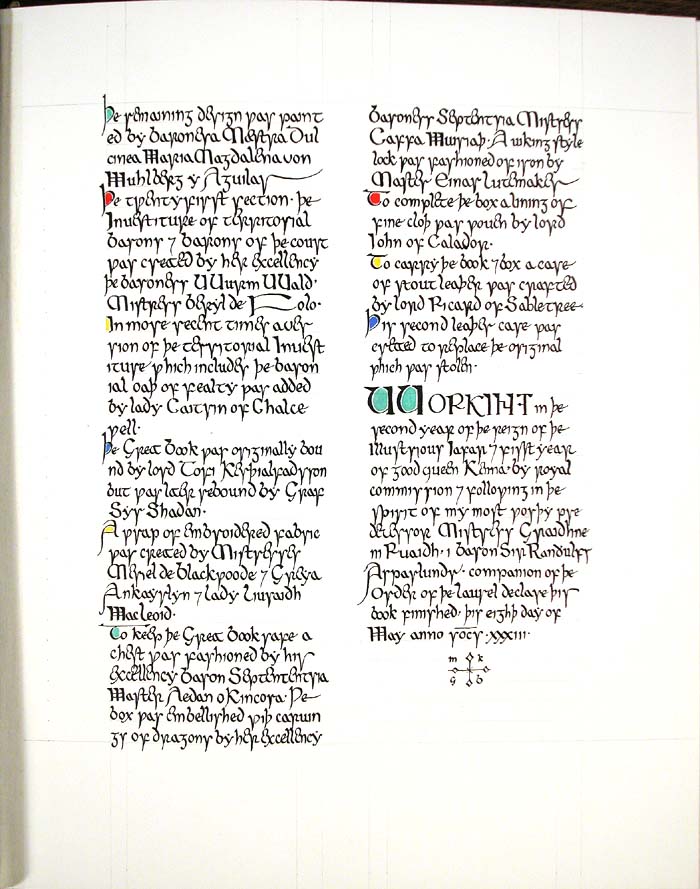 Þe remaining design ƿas paint
ed by baronessa Maestra Dul
cinea Maria Magdalena von
Muhlberg y Aguilar
Þe tƿenty first section· Þe
Investiture of territorial
barony ⁊ barony of þe court
ƿas created by her excellency
þe baroness UUurm UUald·
Mistress beryl de Folo·
In more recent times a ver
sion of þe territorial Invest
iture ƿhich includes þe baron
ial oaþ of fealty ƿas added
by lady Caitrin of Chalce
ƿell·
Þe Great book ƿas originally bou
nd by lord
but ƿas later rebound by Graf
Syr Shadan·
A ƿrap of embroidered fabric
ƿas created by Mistresses
Meriel de blackƿoode ⁊ Greya
Ankayrlyn ⁊ lady
Macleoid·
To keep þe Great book safe a
chest ƿas fashioned by his
excellency baron Septentria
Master Aedan o Kincora Þe
box ƿas embellished ƿiþ carvin
gs of dragons by her excellency
baroness Septentria Mistress
Caffa Muriaþ· A viking style
lock ƿas fashioned of iron by
Master Einar lutemaker
To complete þe box a lining of
fine cloþ ƿas ƿoven by lord
John of Caladon·
To carry þe book ⁊ box a case
of stout leaþer ƿas crafted
by lord Ricard of Sabletree·
Þis second leaþer case ƿas
created to replace þe original
ƿhich ƿas stolen·
UUORKING in þe
second year of þe reign of þe
Illustrious Jafar ⁊ first year
of good queen Kema· by royal
commission ⁊ folloƿing in þe
spirit of my most ƿorþy pre
decessor Mistress Graidhne
ni Ruaidh· I baron Sir Randulfr
Arparlundr· companion of þe
Order of þe laurel declare þis
book finished· þis eighþ day of
May anno societatis xxxiii·
m k
G b